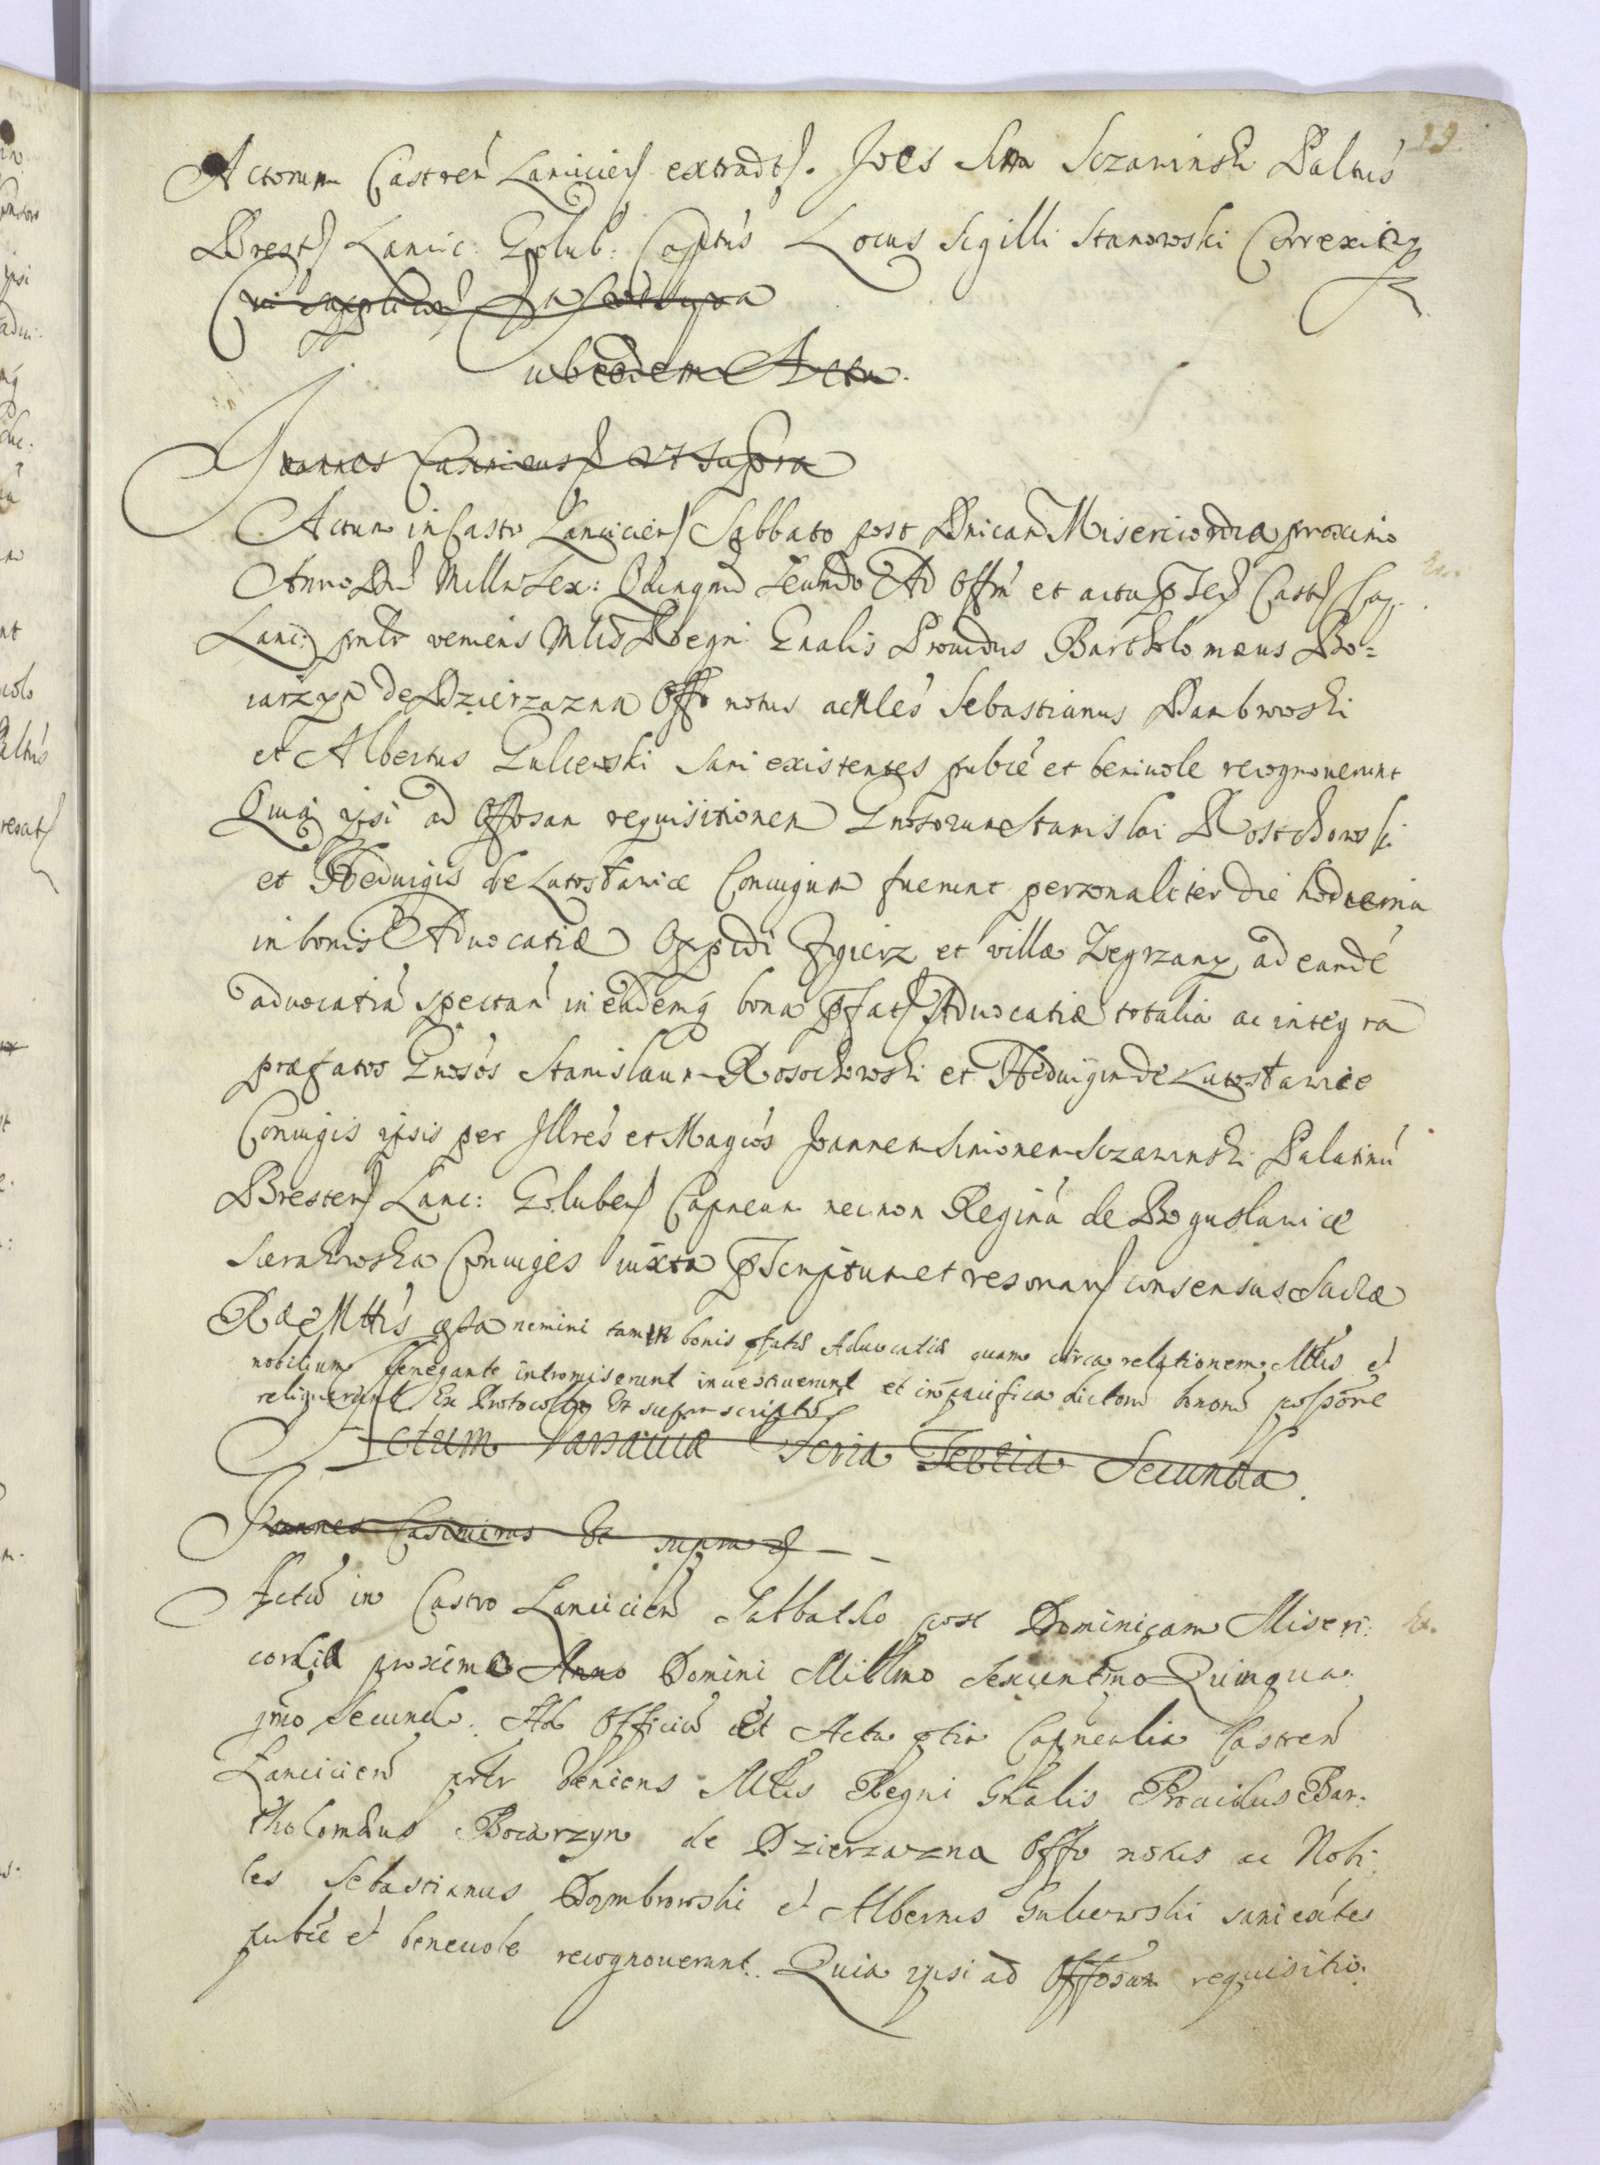 39.
Actorum Castren Lanciciens extradts. Joes Sim Sczawinski Paltus
Brests Lancic: Golub: Captus Locus Sigilli Stanowski Correxit
ut supra
ubeodem Actu.
Joannes Casimirus ut supra
Actum in Castr Lanciciens Sabbato post Dnicam Misericordia proximo
Anno Dni Millo Sex: Quinqmo Secundo Ad Offm et acta Casts Cap.
Lanc: veniens Mlis Regni Gnalis Providus Bartholomæus Bo=
iarzyn de Dzierzazna Offo notus ac Nles Sebastianus Dambrowski
et Albertus Gulczewski Sani existentes publce et benivole recognoverunt
Quia ipsi ad Offosam requisitionem Gnosorum Stanislai Rosochowski
et Heduigis de Lutostawice Coniugum fuerunt personaliter die hodierna
in bonis Aduocatiæ Oppidi Zgierz et villæ Zegrzany ad eande
aduocatia spectan in eademq bona pfats Aduocatiæ totalia ac integra
præfatos Gnosos Stanislaum Rosochowski et Heduigim de Lutostawice
Coniugis ipsis per Illres et Magcos Joannem Simonem Sczawinski Palatinu
Brestens Lanc: Golubens Capneum necnon Regina de Boguslawice
Sierakowska Coniuges iuxta pscriptum et resonans consensus Sacræ
Ræ Mttis nemini tam in bonis pfatæ Aduocatiæ quam circa relationem Mlis et
nobilium denegante intromiserunt investiverunt et in pacifica dictom bonom possone
reliquerunt Ex Protocollo Ut supra scripto
Actum Varsaviæ Feria Tertia Secunda.
Joannes Casimirus Ut supra
Actu in Castro Lancicien Sabbatho post Dominicam Miseri:
cordia proximo Anno Domini Millmo Sexcentmo Quinqua:
gmo Secund. Ad Officiu Et Acta ptia Capnealia Castren
Lancicien veniens Mlis Regni Gnalis Providus Bar:
tholomæus Boiarzyn de Dzierzazna Offo notus ac Nobi:
les Sebastianus Dąmbrowski et Albertus Gulczewski sani extes
publce et benevole recognoverunt. Quia ipsi ad Offosam requisitio: